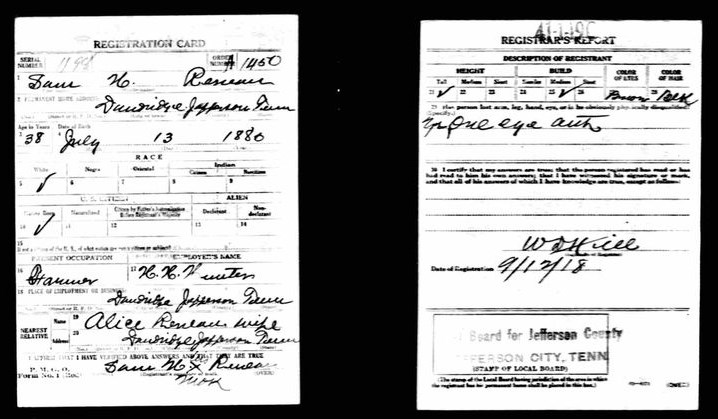 REGISTRATION CARD
SERIAL NUMBER
ORDER NUMBER A 1450
1 Sam H. Reneau
2 PERMANENT HOME ADDRESS
Dandridge Jefferson Tenn
Age in Years Date of Birth
38 July 13 1880
RACE
White Negro Oriental Indian
Citizen Noncitizen
5 ✓ 6 7 8 9
U. S. CITIZEN ALIEN
Native Born Naturalized Citizen by Father's Naturalization Before Registrant's Majority Declarant Non-declarant
10 ✓ 11 12 13 14
15
If not a citizen of the U. S., of what nation are you a citizen or subject?
PRESENT OCCUPATION EMPLOYER'S NAME
16 Farmer 17
18 PLACE OF EMPLOYMENT OR BUSINESS
Dandridge Jefferson Tenn
NEAREST RELATIVE
Name 19 Alice Reneau wife
Address 20 Dandridge Jefferson Tenn
I AFFIRM THAT I HAVE VERIFIED ABOVE ANSWERS AND THAT THEY ARE TRUE
P. M. G. O.
Form No. 1
Sam H. X Reneau
(OVER)
REGISTRAR'S REPORT
DESCRIPTION OF REGISTRANT
HEIGHT BUILD COLOR OF EYES COLOR OF HAIR
Tall Medium Short Slender Medium Stout
21 ✓ 22 23 24 25 ✓ 26 27 Brown 28 Black
29 Has person lost arm, leg, hand, eye, or is he obviously physically disqualified?
(Specify.)
One eye out
30 I certify that my answers are true; that the person registered has read or has
had read to him his own answers; that I have witnessed his signature or mark,
and that all of his answers of which I have knowledge are true, except as follows:
W D Hill
Date of Registration 9/12/18
Board for Jefferson County
JEFFERSON CITY, TENN.
(STAMP OF LOCAL BOARD)
(The stamp of the Local Board having jurisdiction of the area in which
the registrant has his permanent home shall be placed in this box.)
(OVER)